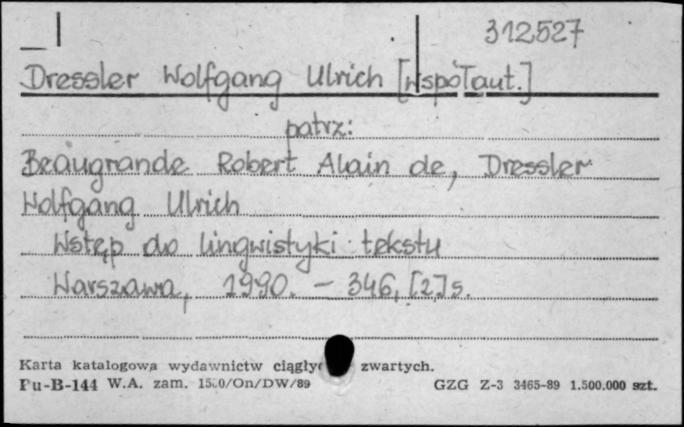 312527
Dressler Wolfgang Ulrich [współaut.]
patrz:
Beaugrande Robert Alain de, Dressler
Wolfgang Ulrich
Wstęp do lingwistyki tekstu
Warszawa, 1990. – 346, [2] s.
Karta katalogowa wydawnictw zwartych.
Pu-B-144 W.A. zam. /On/DW/89 GZG Z-3 3465-89 1.500.000 szt.